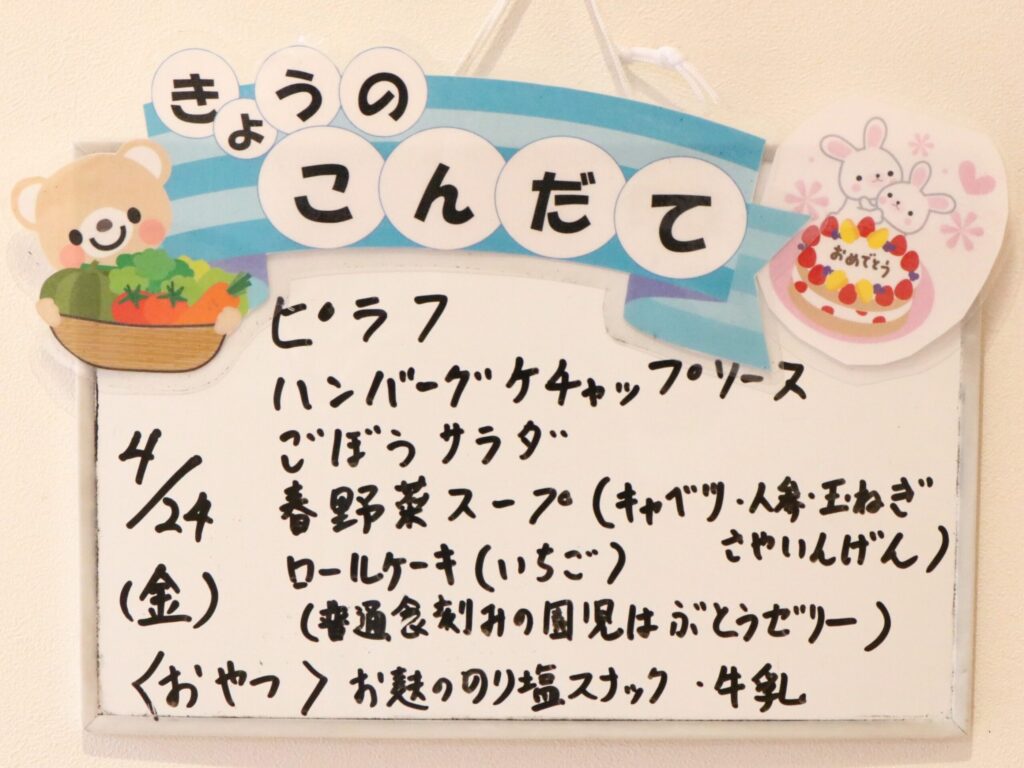 きょうの
こんだて
おめでとう
ピラフ
ハンバーグケチャップソース
4/24
(金)
ごぼうサラダ
春野菜スープ(キャベツ・人参・玉ねぎ
さやいんげん)
ロールケーキ(いちご)
(普通食刻みの園児はぶどうゼリー)
〈おやつ〉お麩ののり塩スナック・牛乳